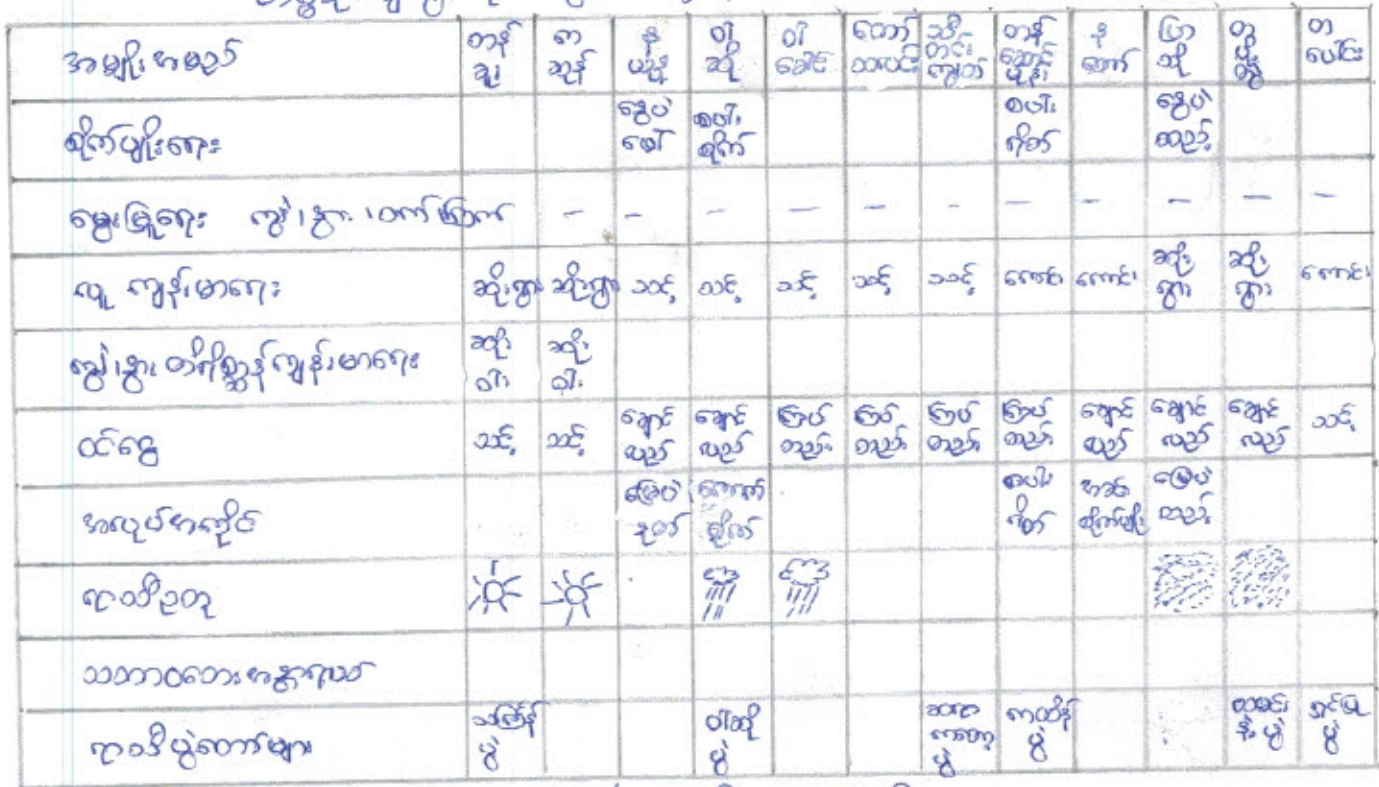 အမျိုးအမည် တန်ခူး ကဆုန် နယုန် ဝါဆို ဝါခေါင် တော်သလင်း သီတင်းကျွတ် တန်ဆောင်မုန်း နတ်တော် ပြာသို တပို့တွဲ တပေါင်း
စိုက်ပျိုးရေး မြေပဲဖော် စပါးစိုက် စပါးရိတ် မြေပဲထည့်
မွေးမြူရေး ကျွဲ၊ နွား၊ ဝက် ကြက် – – – – – – – – – – –
လူ ကျန်းမာရေး ဆိုးရွား ဆိုးရွား သင့် သင့် သင့် သင့် သင့် ကောင်း ကောင်း ဆိုးရွား ဆိုးရွား ကောင်း
ကျွဲ၊ နွား၊ တိရိစ္ဆာန်ကျန်းမာရေး ဆိုးဝါး ဆိုးဝါး
ဝင်ငွေ သင့် သင့် ချောင်လည် ချောင်လည် ကြပ်တည်း ကြပ်တည်း ကြပ်တည်း ကြပ်တည်း ချောင်လည် ချောင်လည် ချောင်လည် သင့်
အလုပ်အကိုင် မြေပဲနုတ် ကောက်စိုက် စပါးရိတ် စိုက်ပျိုး မြေပဲ
ရာသီဥတု
သဘာဝဘေးအန္တရာယ်
ရာသီပွဲတော်များ သင်္ကြန်ပွဲ ဝါဆိုပွဲ ပွဲ ကထိန်ပွဲ ထမင်းနဲပွဲ ရှင်ပြုပွဲ